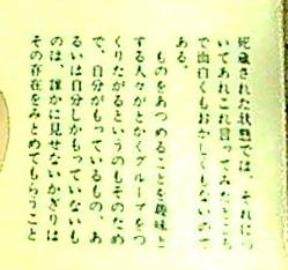 死蔵された状態では、それに
いてあれこれ言ってみたところ
で面白くもおかしくもないので
ある。
ものをあつめることを趣味と
する人々がとかくグループをつ
くりたがるというのもそのため
で、自分がもっているもの、あ
るいは自分しかもっていないも
のは、誰かに見せないかぎりは
その存在をみとめてもらうこと